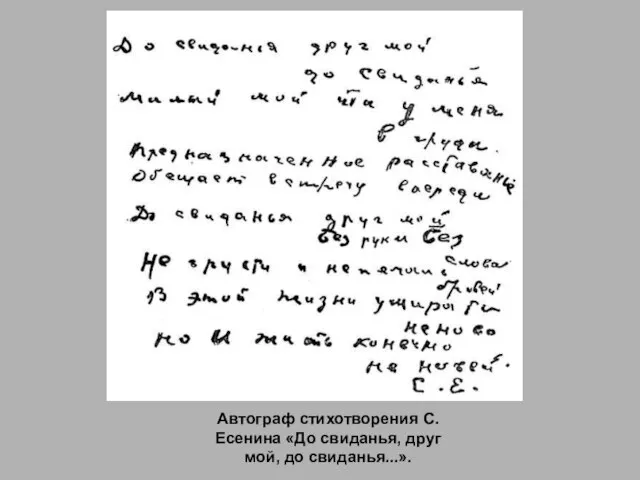 До свиданья друг мой
до свиданья
милый мой ты у меня
в груди.
Предназначенное расставанье
Обещает встречу впереди
До свиданья друг мой
без руки без
слова
Не грусти и не печаль
бровей
В этой жизни умирать
не ново
но и жить конечно
не новей.
С. Е.
Автограф стихотворения С.
Есенина «До свиданья, друг
мой, до свиданья...».